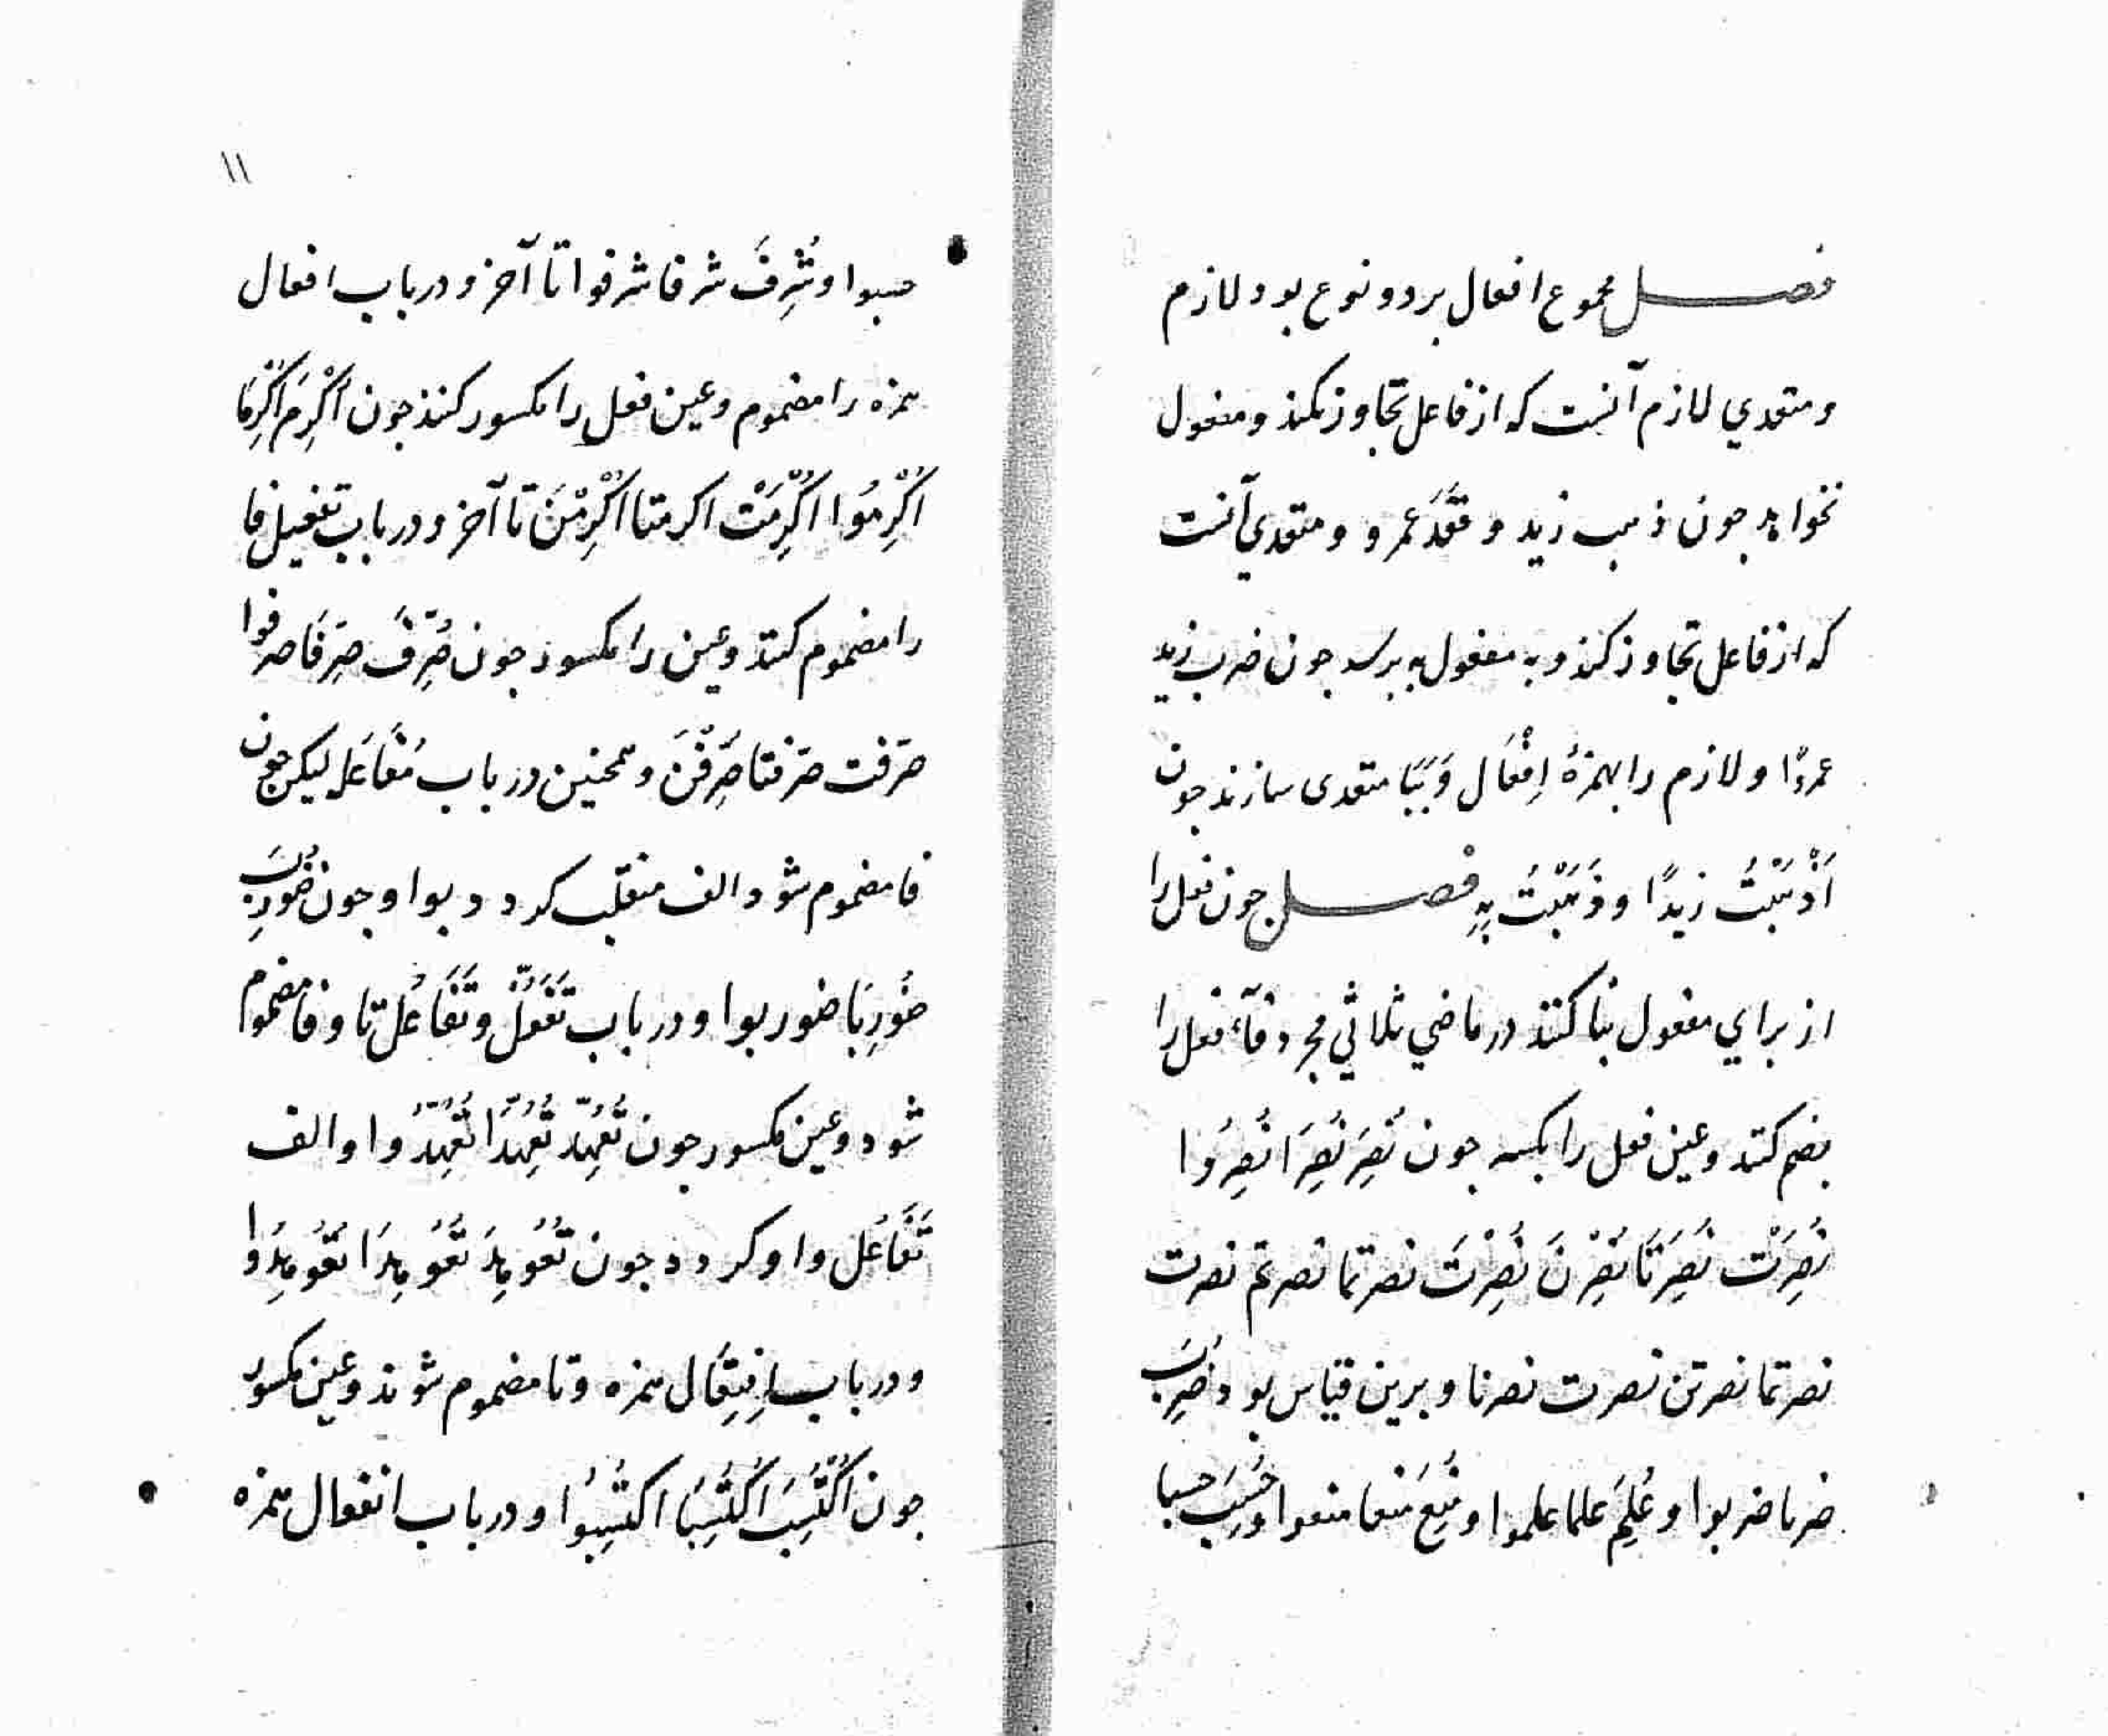 فصل مجموع افعال بر دو نوع بود لازم
و متعدي لازم آنست که از فاعل تجاوز نکند و مفعول
نخواهد جون ذهب زيد و قَعَدَ عمرو و متعدي آنست
که از فاعل تجاوز کند و به مفعول به برسد جون ضرب زيد
عمروًا و لازم را بهمزهٔ اِفْعَال وَ بَبَا متعدى سازند جون
اَذْهَبْتُ زيدًا و ذَهَبْتُ بِهِ فصل جون فعل را
از براي مفعول بنا کنند در ماضي ثلاثي مجرد فآء فعل را
بضم کنند و عين فعل را بکسر جون نُصِرَ نُصِرَا نُصِرُوا
نُصِرَتْ نُصِرَتَا نُصِرْنَ نُصِرْتَ نصرتما نصرتم نصرت
نصرتما نصرتن نصرت نصرنا و برين قياس بود ضُرِبَ
ضربا ضربوا و عُلِمَ علما علموا و مُنِعَ منعا منعوا و حُسِبَ حسبا
۱۱
حسبوا و شُرِفَ شرفا شرفوا تا آخر و در باب افعال
همزه را مضموم و عين فعل را مکسور کنند جون اُکْرِمَ اُکْرِمَا
اُکْرِمُوا اُکْرِمَتْ اکرمتا اُکْرِمْنَ تا آخر و در باب تفعيل فا
را مضموم کنند و عين را مکسور جون صُرِّفَ صُرِّفَا صرفوا
صرّفت صرّفتا صُرِّفْنَ و همجنين در باب مُفَاعَله ليکن جون
فا مضموم شود الف منقلب کردد بواو جون ضُورِبَ
ضُورِبَا ضوربوا و در باب تَفَعُّل و تَفَاعُل تا و فا مضموم
شود و عين مکسور جون تُعُهِّدَ تُعُهِّدَا تُعُهِّدُوا و الف
تَفَاعُل واو کردد جون تُعُوهِدَ تُعُوهِدَا تُعُوهِدُوا
و در باب اِفْتِعَال همزه و تا مضموم شوند و عين مکسور
جون اُکْتُسِبَ اُکْتُسِبَا اکتُسِبُوا و در باب انفعال همزه